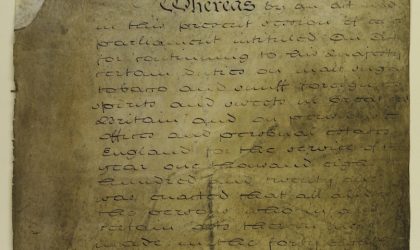 Whereas by an act made
in this present session of
parliament intituled An act
for continuing to his Majesty
certain duties on malt sugar
tobacco and snuff foreign
spirits and sweets in Great
Britain and on pensions
offices and personal estates
England for the service of the
year one thousand eight
hundred and twenty
was enacted that all and
the powers
certain acts
made in the